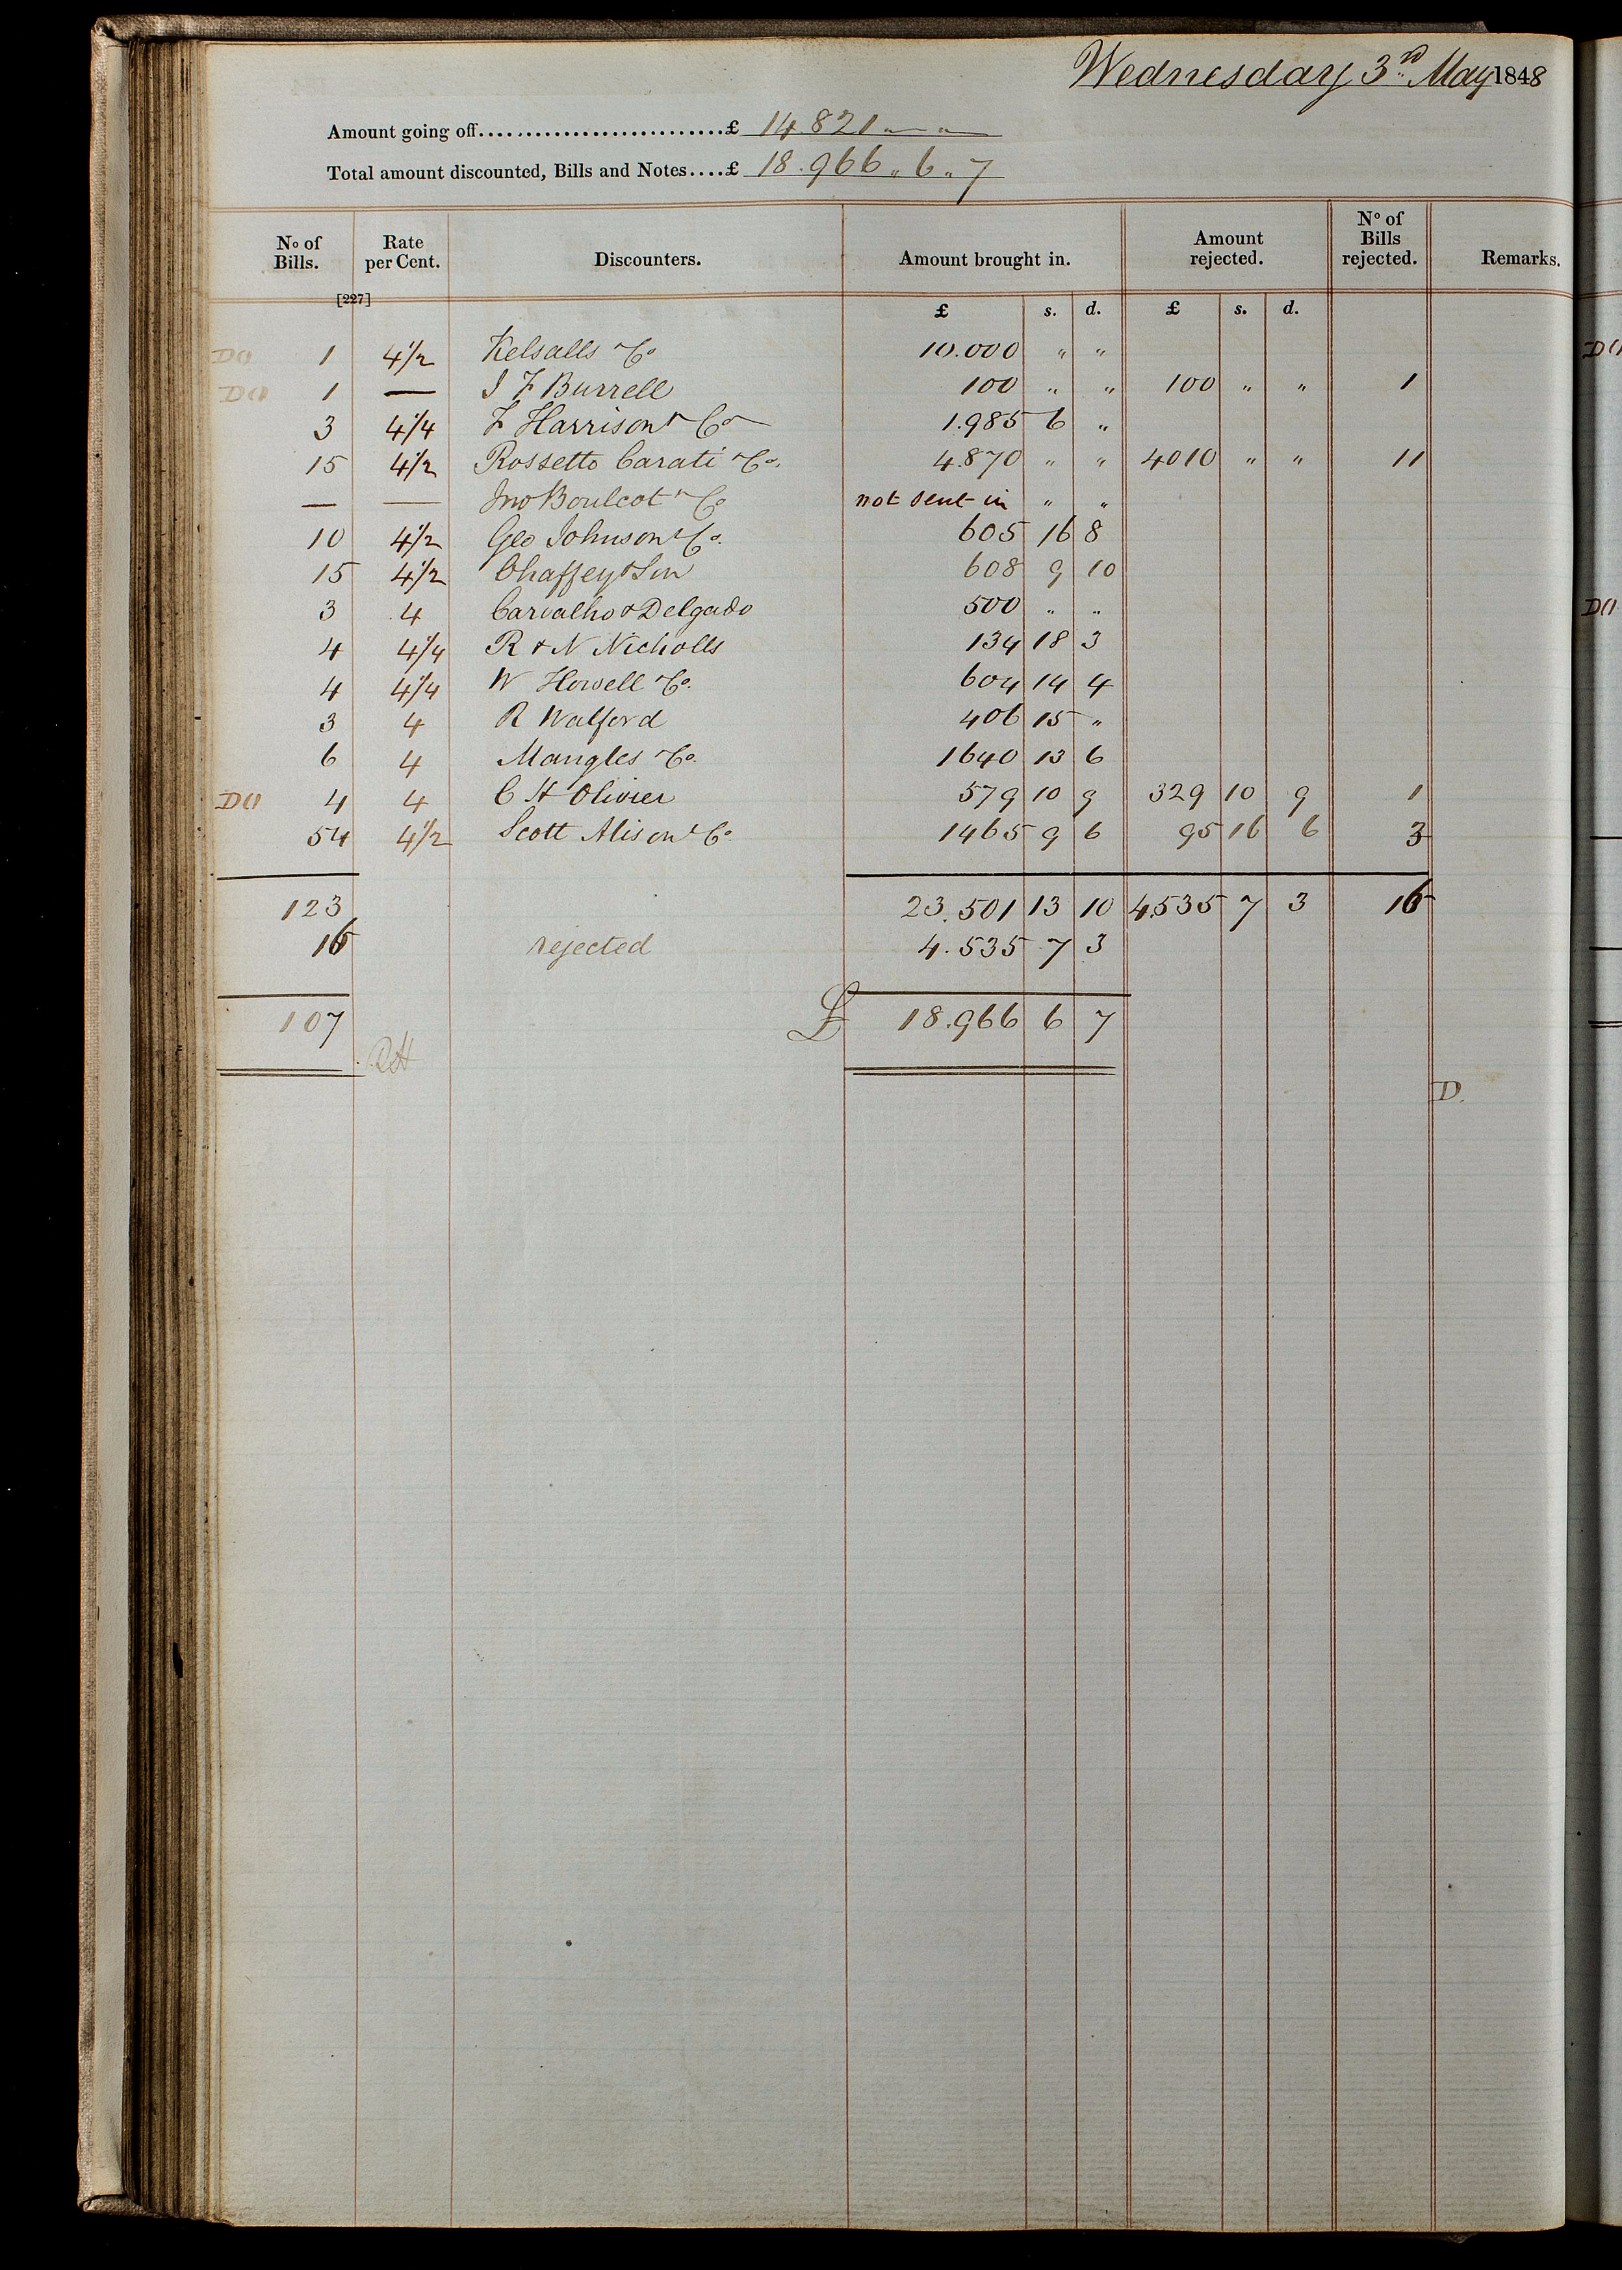 Wednesday 3rd May 1848
Amount going off..........................£ 14.821 " "
Total amount discounted, Bills and Notes....£ 18.966 " 6 " 7
No of Bills. Rate per Cent. Discounters. Amount brought in. Amount rejected. No of Bills rejected. Remarks.
[227]
£ s. d. £ s. d.
DO 1 4 1/2 Kelsalls & Co 10.000 " "
DO 1 — J F Burrell 100 " " 100 " " 1
3 4 1/4 F Harrison & Co 1.985 6 "
15 4 1/2 Rossetto Carati & Co. 4.870 " " 4010 " " 11
— — Jno Boulcot & Co not sent in " "
10 4 1/2 Geo Johnson & Co. 605 16 8
15 4 1/2 Chaffey & Son 608 9 10
3 4 Carvalho & Delgado 500 " "
4 4 1/4 R & N Nicholls 134 18 3
4 4 1/4 W Howell & Co. 604 14 4
3 4 R Walford 406 15 "
6 4 Mangles & Co. 1640 13 6
DO 4 4 C H Olivier 579 10 9 329 10 9 1
54 4 1/2 Scott Alison & Co. 1465 9 6 95 16 6 3
123 23.501 13 10 4.535 7 3 16
16 rejected 4.535 7 3
107 £ 18.966 6 7
RH
D.